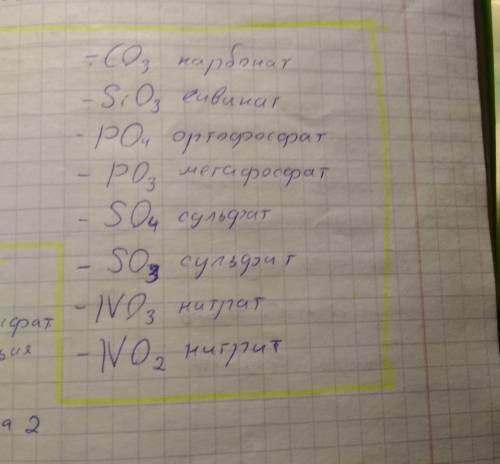 - CO3 карбонат
- SiO3 силикат
- PO4 ортофосфат
- PO3 метафосфат
- SO4 сульфат
- SO3 сульфит
- NO3 нитрат
- NO2 нитрит
а 2